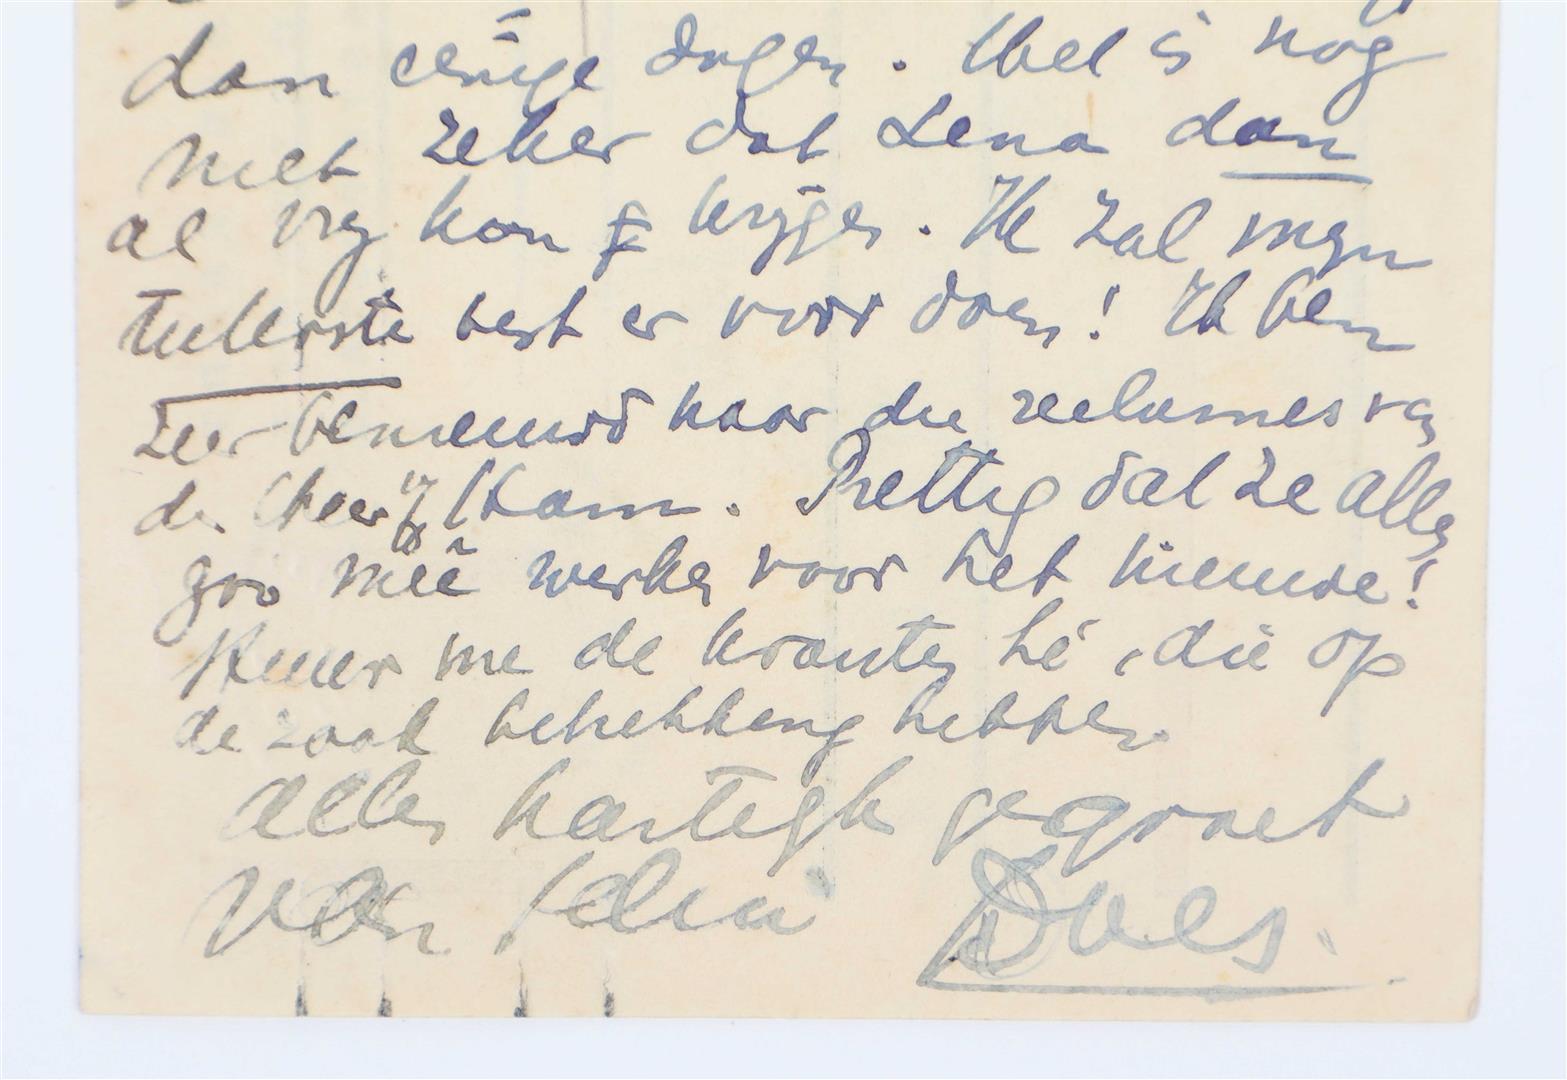 dan eenige dagen. Wel is nog
niet zeker dat Lena dan
al vrij kan krijgen. Ik zal mijn
uiterste best er voor doen! Ik ben
zeer benieuwd naar die reclames van
de Kam. Prettig dat ze allen
zoo meê werken voor het nieuwe!
Stuur me de kranten hé, die op
de zaak betrekking hebben.
Allen hartelijk gegroet
van Does.